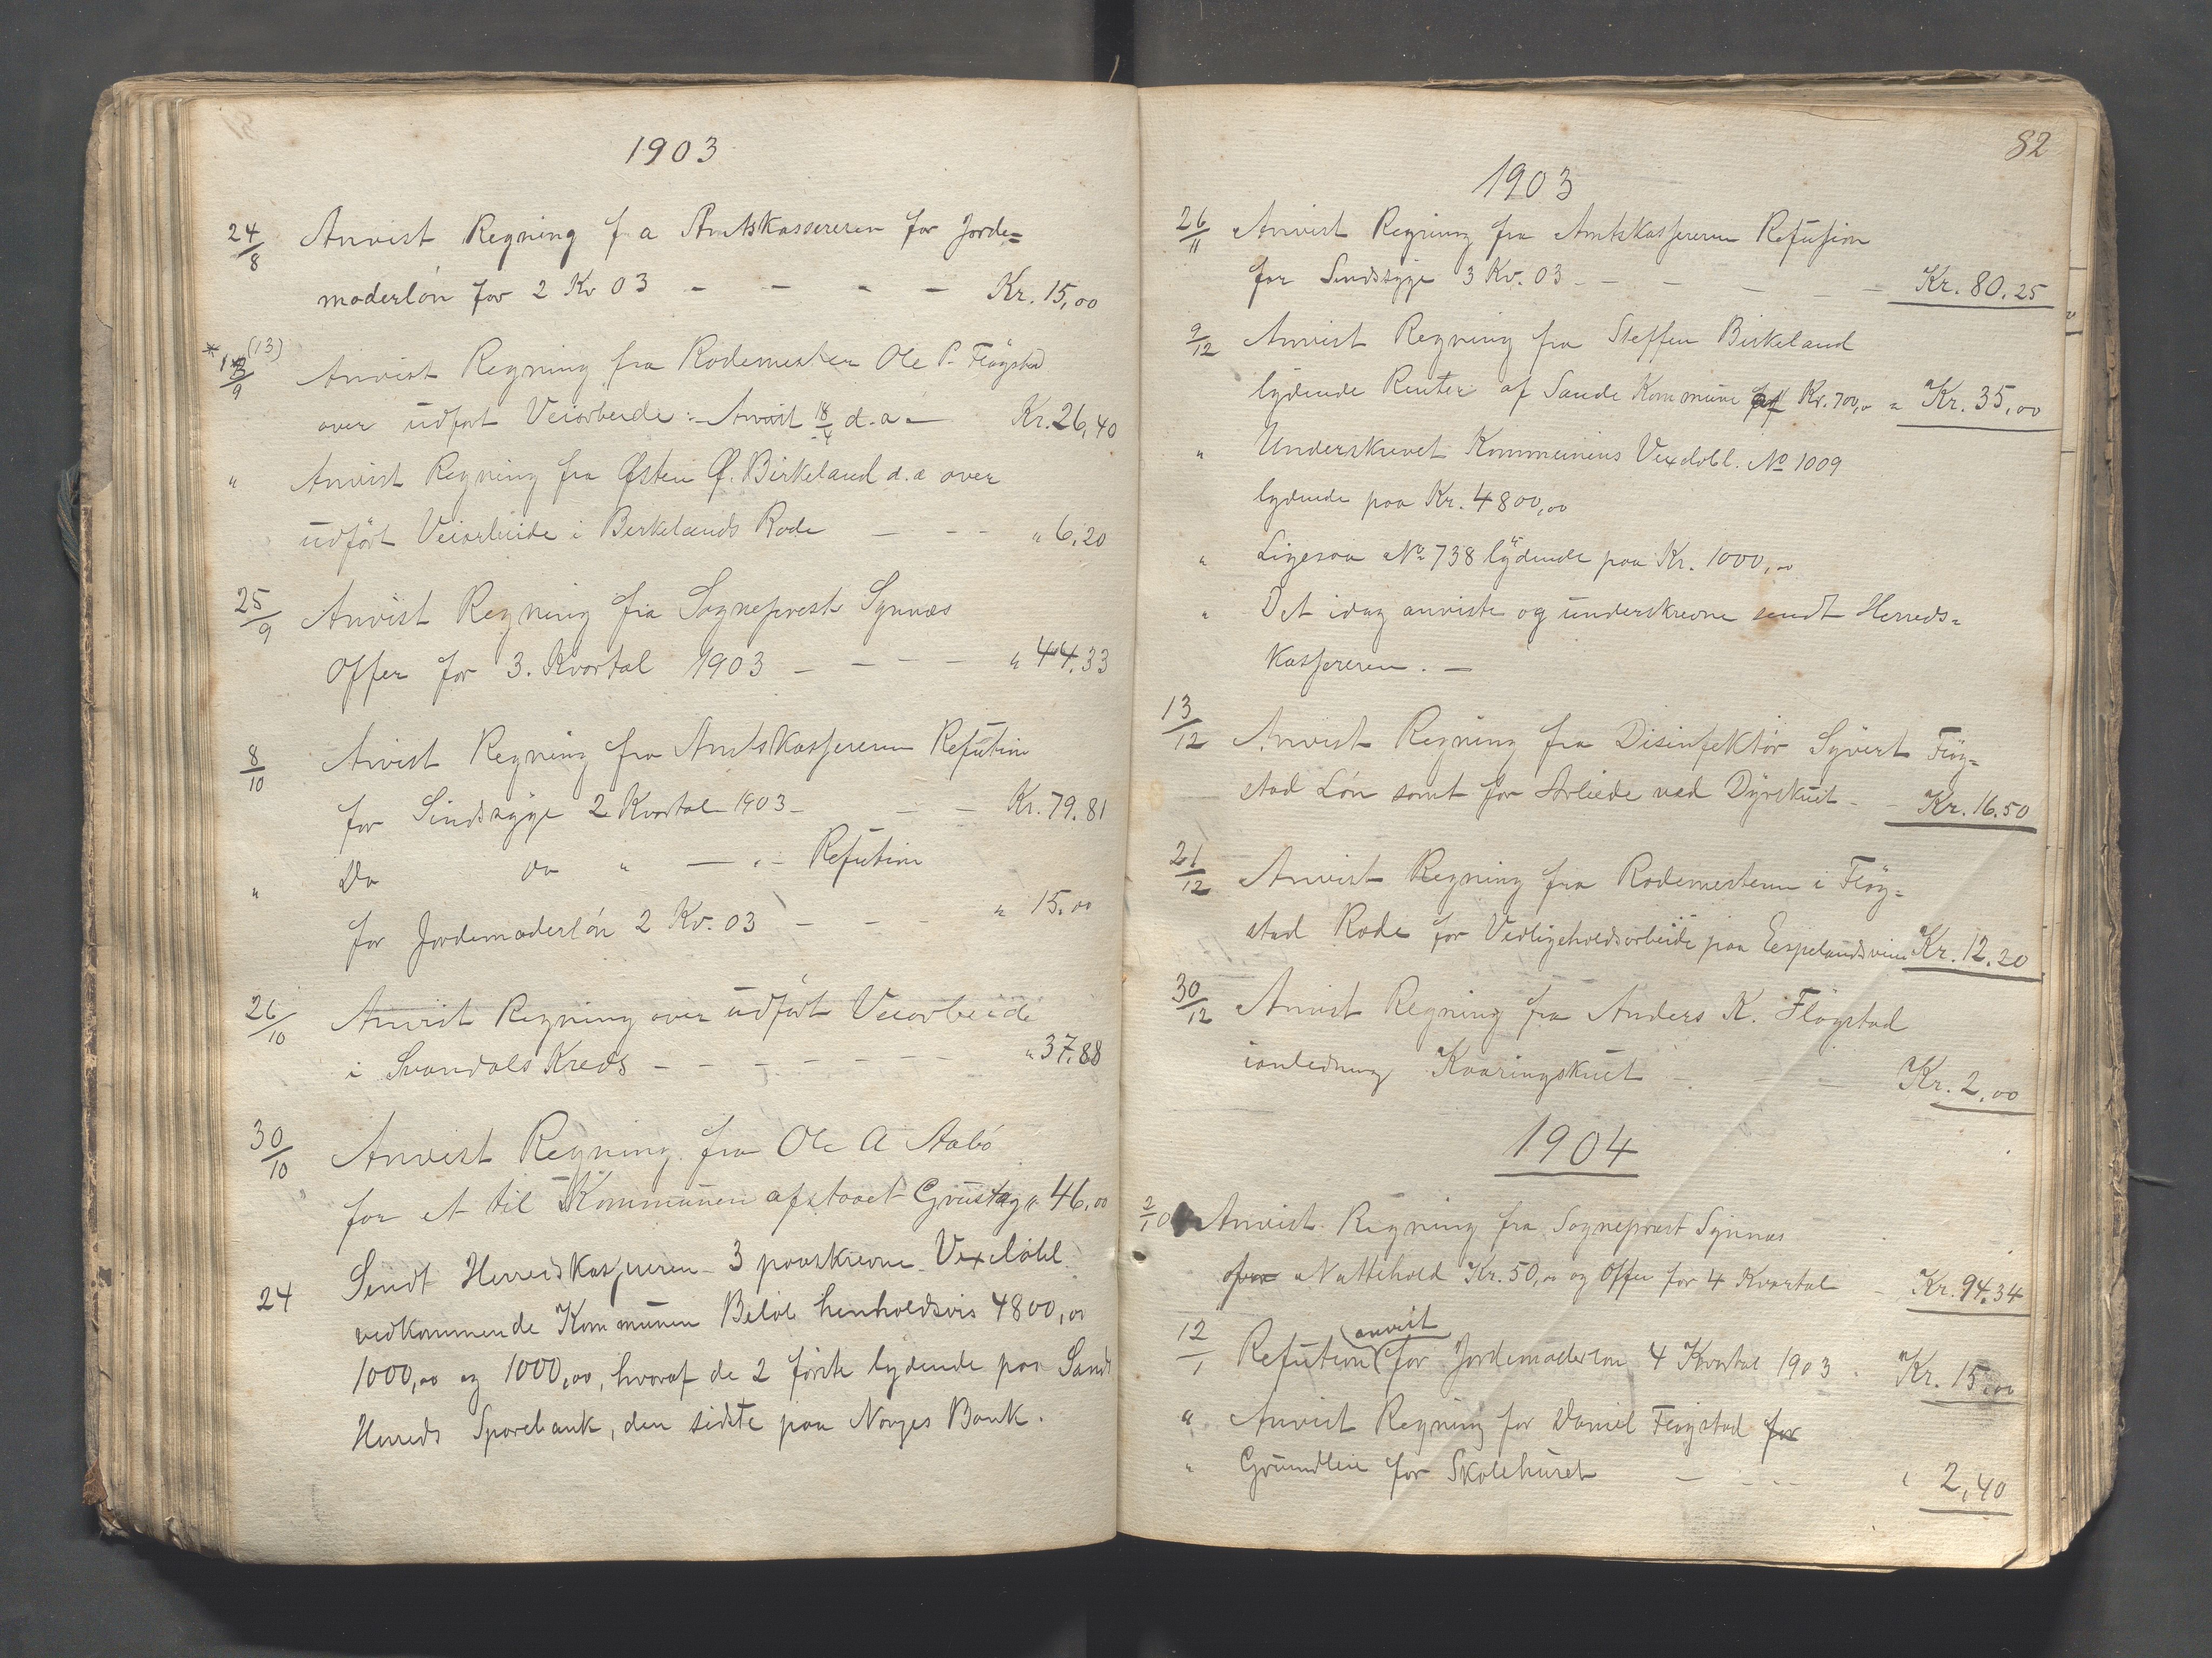 1903
24/8 Anvist Regning f a Amtskassereren for Jorde=
moderlön for 2 Kv 03 - - - - Kr. 15,00
* 13/9 (13) Anvist Regning fra Rodemester Ole P. Flögstad
over udført Veiarbeide :- Anvist 18/4 d.a. - Kr. 26,40
" Anvist Regning fra Østen Ø. Birkeland d.æ over
udført Veiarbeide i Birkelands Rode - - - " 6,20
25/9 Anvist Regning fra Sogneprest Synnæs
Offer for 3. Kvartal 1903 - - - - " 44,33
8/10 Anvist Regning fra Amtskassereren Refution
for Sindssyge 2 Kvartal 1903 - - - Kr. 79.81
" Do Do " - " - Refution
for Jordemoderlön 2 Kv. 03 - - - " 15,00
26/10 Anvist Regning over udført Veiarbeide
i Svandals Kreds - - - - - - - " 37,88
30/10 Anvist Regning fra Ole A Aabö
for et til Kommunen afstaaet Grustag " 46,00
24 Sendt Herredskassereren 3 paaskrevne Vexelobl.
vedkommende Kommunen Beløb henholdsvis 4800,00
1000,00 og 1000,00, hvoraf de 2 første lydende paa Sand
Herreds Sparebank, den sidste paa Norges Bank.
82
1903
26/11 Anvist Regning fra Amtskassereren Refusion
for Sindssyge 3 Kv. 03 - - - - - Kr. 80.25
9/12 Anvist Regning fra Steffen Birkeland
lydende Renter af Sande Kommune af Kr. 700,00 = Kr. 35,00
" Underskrevet Kommunens Vexelobl. No 1009
lydende paa Kr. 4800,00
" Ligesaa No 738 lydende paa Kr. 1000,00
" Det idag anviste og underskrevne sendt Herreds=
Kassereren. -
13/12 Anvist Regning fra Disinfektör Syvert Flög=
stad Lön samt for Arbeide ved Dyrskuet - - Kr. 16.50
21/12 Anvist Regning fra Rodemesteren i Flög=
stad Rode for Vedligeholdsarbeide paa Eespelandsveien Kr. 12.20
30/12 Anvist Regning fra Anders K. Flögstad
ianledning Kaaringskuet - - - Kr. 2,00
1904
2/1 0 Anvist Regning fra Sogneprest Synnæs
for Nattehold Kr. 50,00 og Offer for 4 Kvartal - Kr. 94.34
12/1 Refution (anvist for Jordemoderlön 4 Kvartal 1903 - Kr. 15,00
" Anvist Regning for Daniel Flögstad for
" Grundleie for Skolehuset - - - - " 2,40